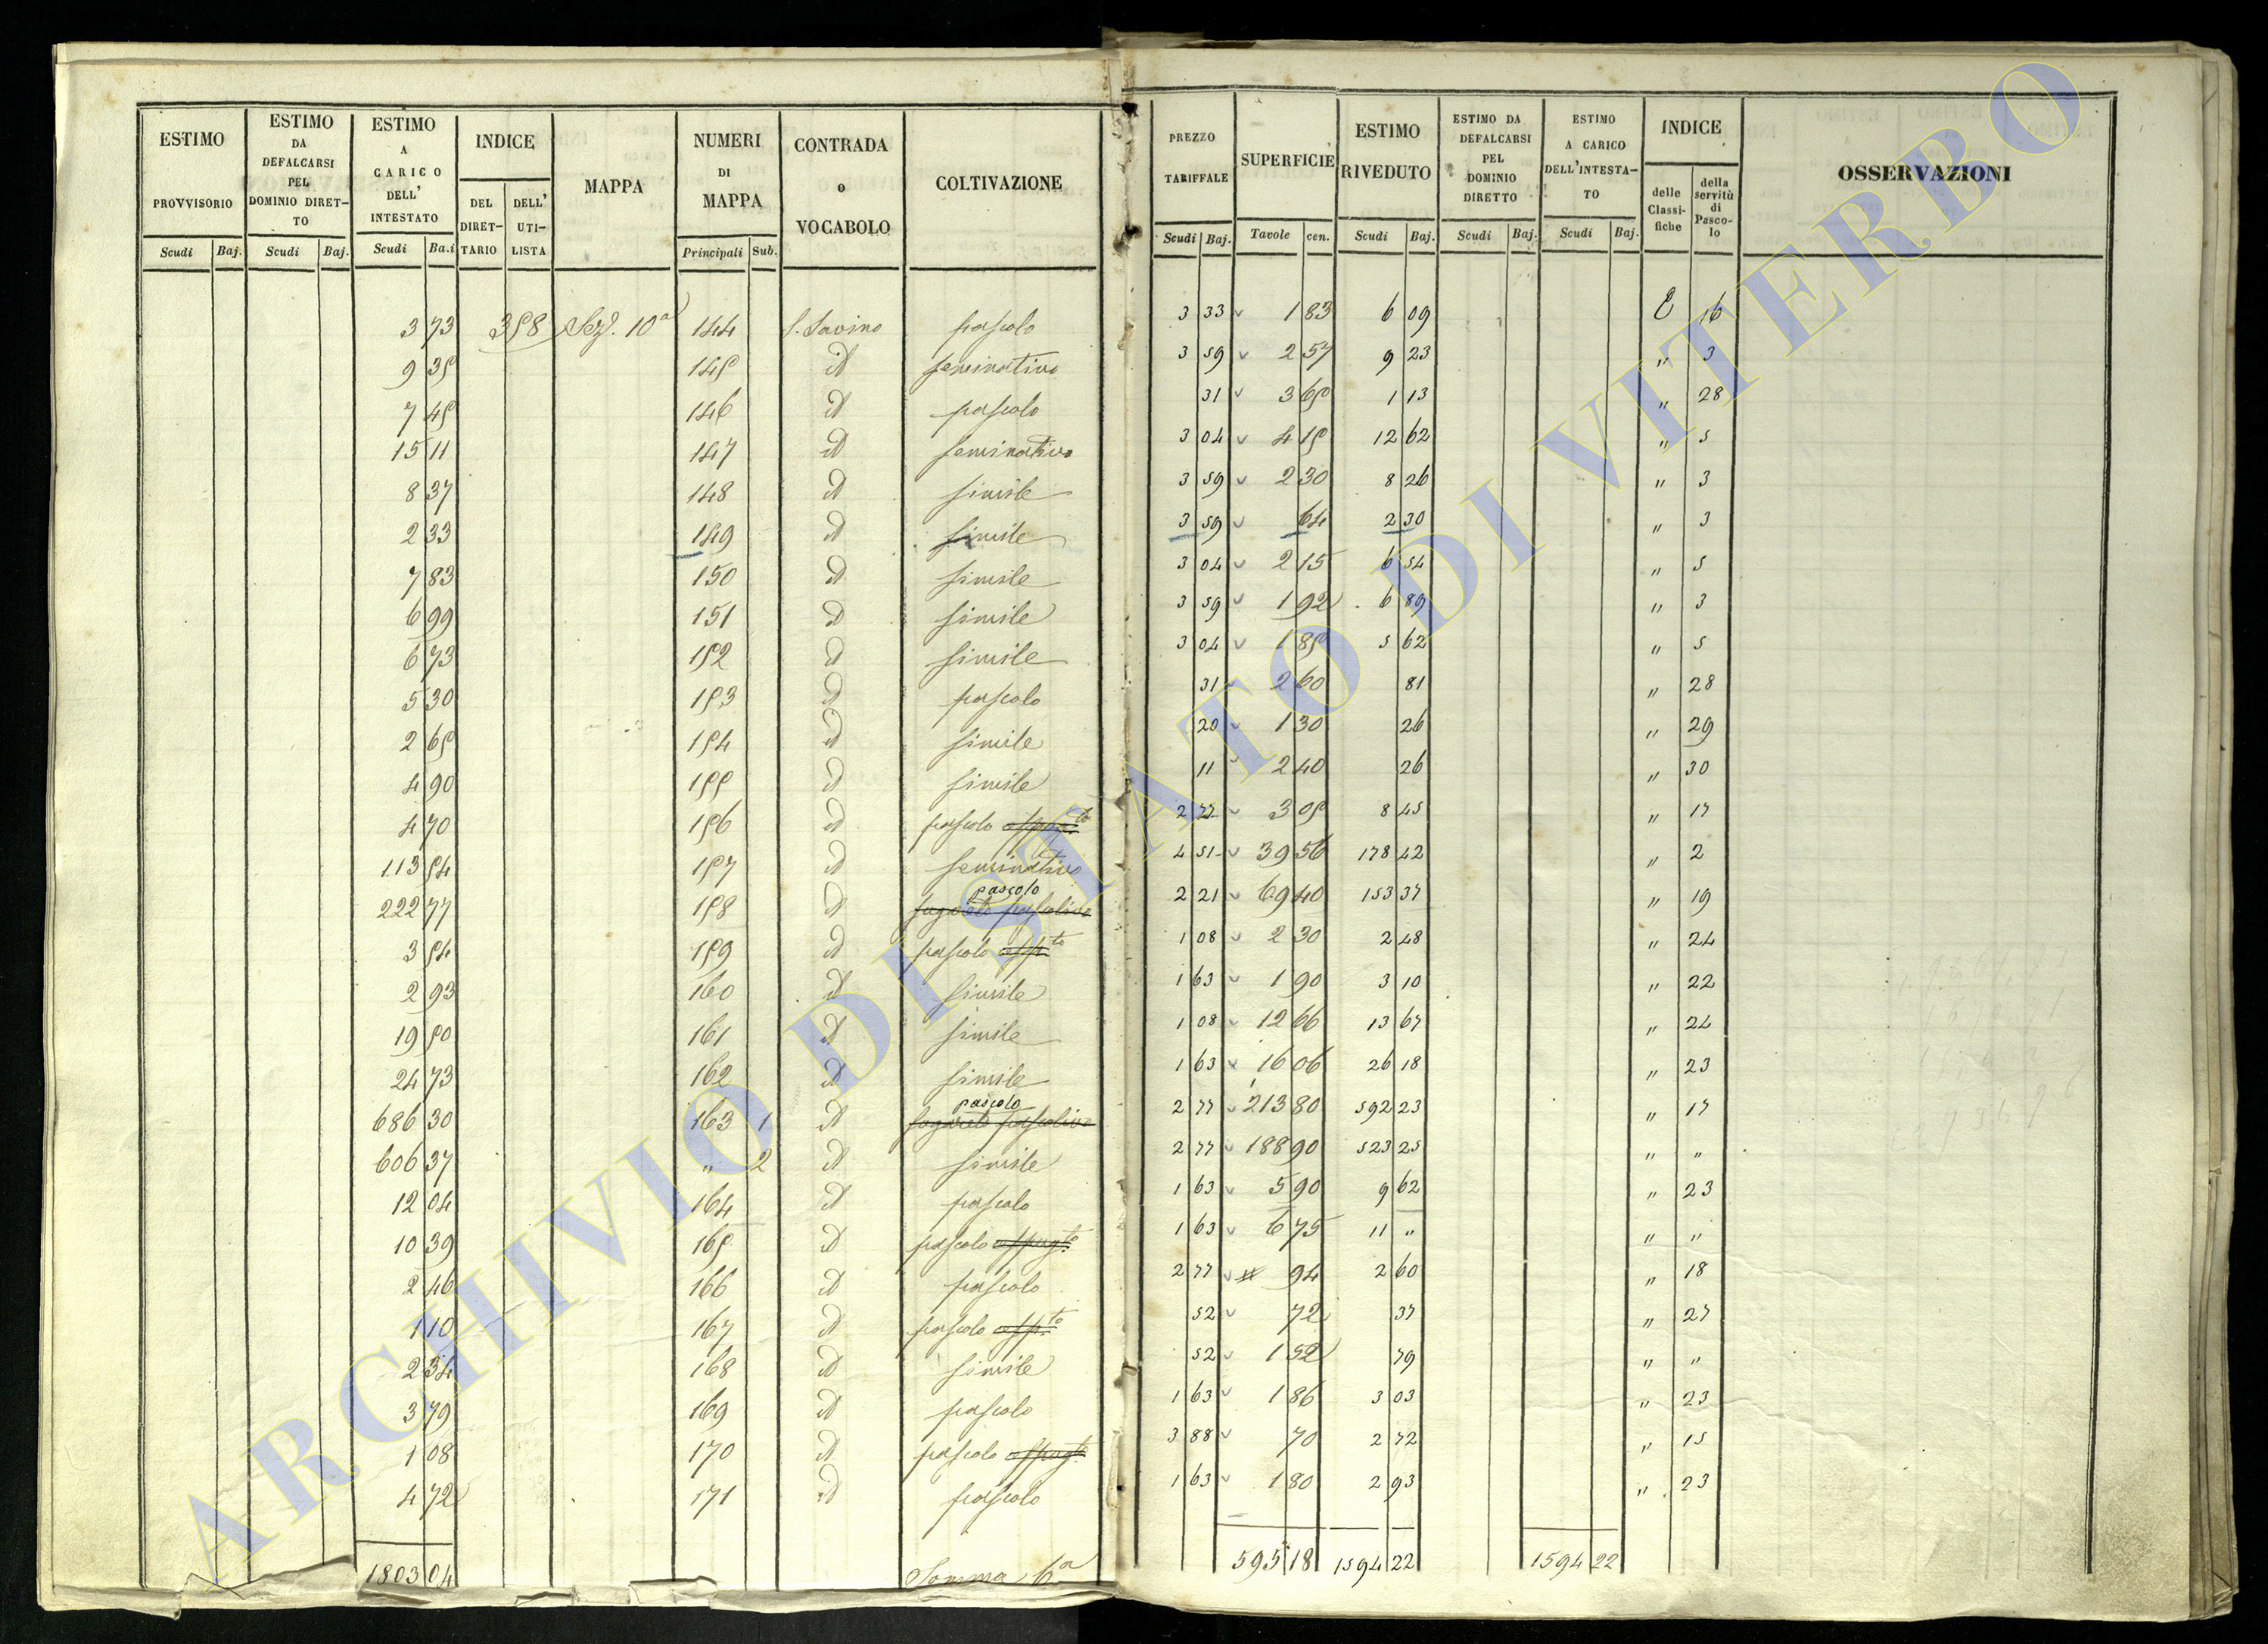 ESTIMO PROVVISORIO
Scudi Baj.
ESTIMO DA DEFALCARSI PEL DOMINIO DIRET-TO
Scudi Baj.
ESTIMO A CARICO DELL' INTESTATO
Scudi Ba.i
INDICE
DEL DIRET-TARIO
DELL' UTI-LISTA
MAPPA
NUMERI DI MAPPA
Principali Sub.
CONTRADA o VOCABOLO
COLTIVAZIONE
PREZZO TARIFFALE
Scudi Baj.
SUPERFICIE
Tavole cen.
ESTIMO RIVEDUTO
Scudi Baj.
ESTIMO DA DEFALCARSI PEL DOMINIO DIRETTO
Scudi Baj.
ESTIMO A CARICO DELL'INTESTA-TO
Scudi Baj.
INDICE
delle Classi-fiche
della servitù di Pasco-lo
OSSERVAZIONI
3 73 358 Sez. 10a 144 S. Savino pascolo 3 33 1 83 6 09 E 16
9 35 145 id seminativo 3 59 2 57 9 23 " 3
7 45 146 id pascolo 31 3 65 1 13 " 28
15 11 147 id seminativo 3 04 4 15 12 62 " 5
8 37 148 id simile 3 59 2 30 8 26 " 3
2 33 149 id simile 3 59 64 2 30 " 3
7 83 150 id simile 3 04 2 15 6 54 " 5
6 99 151 id simile 3 59 1 92 6 89 " 3
6 73 152 id simile 3 04 1 85 5 62 " 5
5 30 153 id pascolo 31 2 60 81 " 28
2 65 154 id simile 20 1 30 26 " 29
4 90 155 id simile 11 2 40 26 " 30
4 70 156 id pascolo 2 77 3 05 8 45 " 17
113 54 157 id seminativo 4 51 39 56 178 42 " 2
222 77 158 id pascolo 2 21 69 40 153 37 " 19
3 54 159 id pascolo app.to 1 08 2 30 2 48 " 24
2 93 160 id simile 1 63 1 90 3 10 " 22
19 50 161 id simile 1 08 12 66 13 67 " 24
24 73 162 id simile 1 63 16 06 26 18 " 23
686 30 163 1 id pascolo 2 77 213 80 592 23 " 17
606 37 " 2 id simile 2 77 188 90 523 25 " "
12 04 164 id pascolo 1 63 5 90 9 62 " 23
10 39 165 id pascolo 1 63 6 75 11 " " "
2 46 166 id pascolo 2 77 94 2 60 " 18
1 10 167 id pascolo app.to 52 72 37 " 27
2 34 168 id simile 52 1 52 79 " "
3 79 169 id pascolo 1 63 1 86 3 03 " 23
1 08 170 id pascolo 3 88 70 2 72 " 15
4 72 171 id pascolo 1 63 1 80 2 93 " 23
1803 04 Somma 6a 595 18 1594 22 1594 22
ARCHIVIO DI STATO DI VITERBO